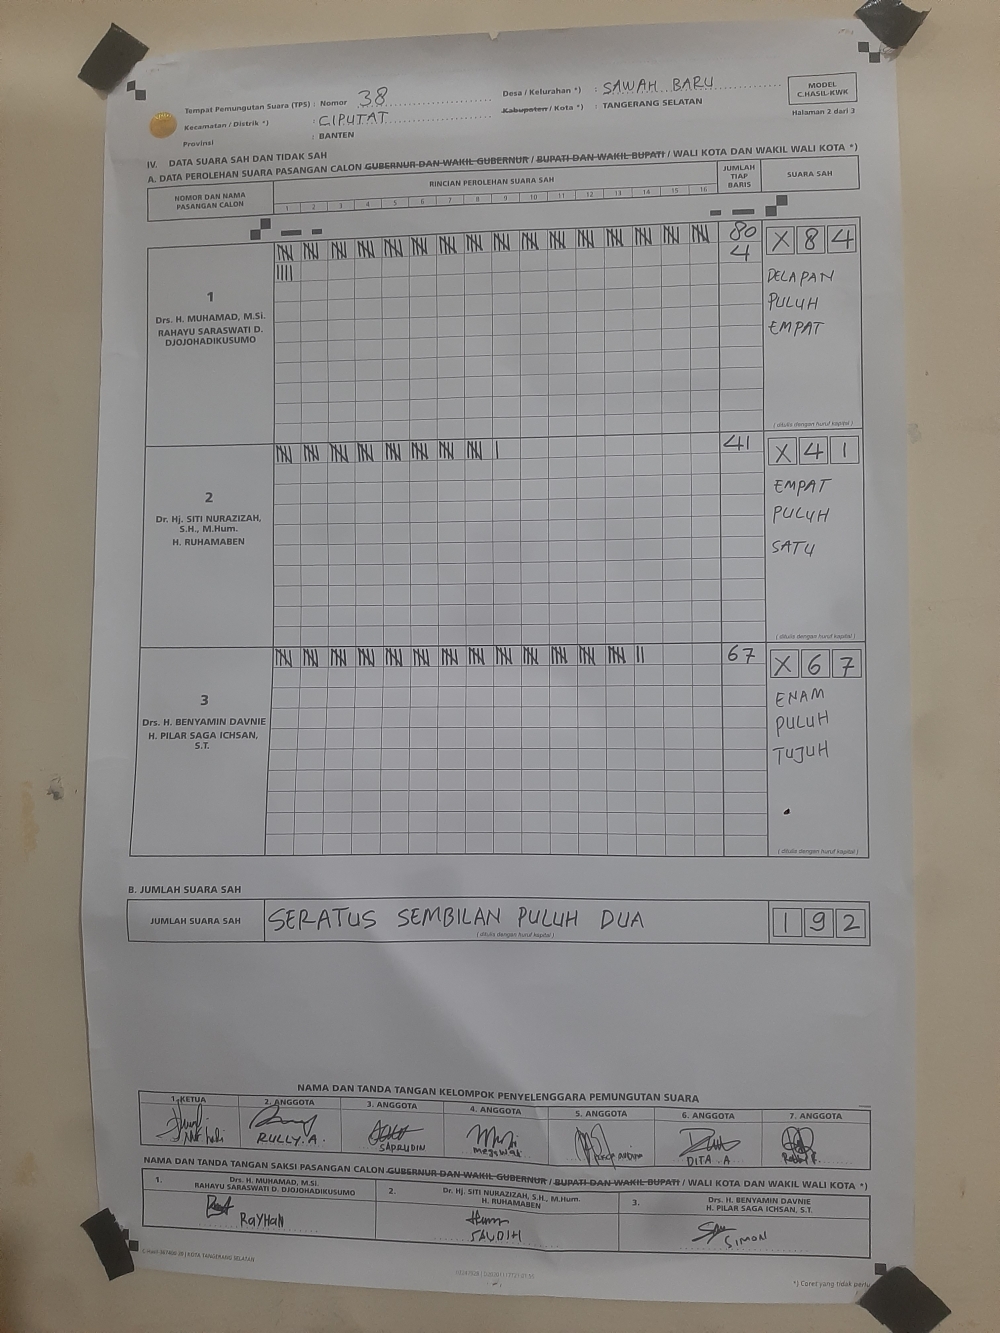 Tempat Pemungutan Suara (TPS) : Nomor 38 Desa / Kelurahan *) : SAWAH BARU
Kecamatan / Distrik *) : CIPUTAT Kabupaten / Kota *) : TANGERANG SELATAN
Provinsi : BANTEN
MODEL
C.HASIL-KWK
Halaman 2 dari 3
IV. DATA SUARA SAH DAN TIDAK SAH
A. DATA PEROLEHAN SUARA PASANGAN CALON GUBERNUR DAN WAKIL GUBERNUR / BUPATI DAN WAKIL BUPATI / WALI KOTA DAN WAKIL WALI KOTA *)
NOMOR DAN NAMA
PASANGAN CALON
RINCIAN PEROLEHAN SUARA SAH
1 2 3 4 5 6 7 8 9 10 11 12 13 14 15 16
JUMLAH
TIAP
BARIS
SUARA SAH
1
Drs. H. MUHAMAD, M.Si.
RAHAYU SARASWATI D.
DJOJOHADIKUSUMO
80
4
X 8 4
DELAPAN
PULUH
EMPAT
( ditulis dengan huruf kapital )
2
Dr. Hj. SITI NURAZIZAH,
S.H., M.Hum.
H. RUHAMABEN
41
X 4 1
EMPAT
PULUH
SATU
( ditulis dengan huruf kapital )
3
Drs. H. BENYAMIN DAVNIE
H. PILAR SAGA ICHSAN,
S.T.
67
X 6 7
ENAM
PULUH
TUJUH
( ditulis dengan huruf kapital )
B. JUMLAH SUARA SAH
JUMLAH SUARA SAH
SERATUS SEMBILAN PULUH DUA
( ditulis dengan huruf kapital )
1 9 2
NAMA DAN TANDA TANGAN KELOMPOK PENYELENGGARA PEMUNGUTAN SUARA
1. KETUA 2. ANGGOTA 3. ANGGOTA 4. ANGGOTA 5. ANGGOTA 6. ANGGOTA 7. ANGGOTA
RULLY.A. SAPRUDIN DITA.A
NAMA DAN TANDA TANGAN SAKSI PASANGAN CALON GUBERNUR DAN WAKIL GUBERNUR / BUPATI DAN WAKIL BUPATI / WALI KOTA DAN WAKIL WALI KOTA *)
1. Drs. H. MUHAMAD, M.Si.
RAHAYU SARASWATI D. DJOJOHADIKUSUMO
RAYHAN
2. Dr. Hj. SITI NURAZIZAH, S.H., M.Hum.
H. RUHAMABEN
3. Drs. H. BENYAMIN DAVNIE
H. PILAR SAGA ICHSAN, S.T.
SIMON
KOTA TANGERANG SELATAN
*) Coret yang tidak